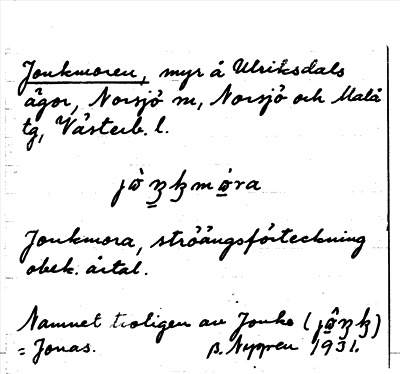 Jonkmoren, myr å Ulriksdals
ägor, Norsjö sn, Norsjö och Malå
tg, Västerb. l.
Jonkmora, ströängsförteckning
obek. årtal.
Namnet troligen av Jonke
= Jonas. B. Nygren 1931.